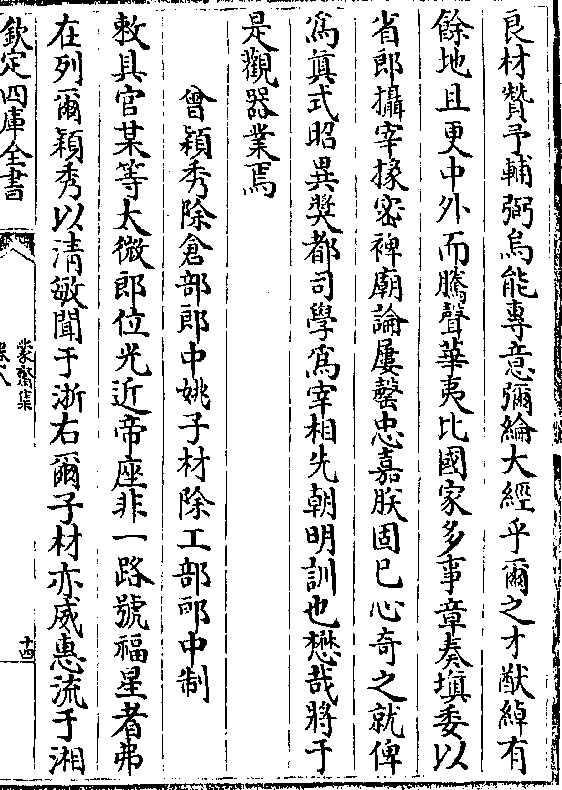 良材贊予輔弼烏能專意彌綸大經乎爾之才猷綽有
餘地且更中外而騰聲華夷比國家多事章奏塡委以
省郎攝宰掾密裨廟論屢罄忠嘉朕固已心奇之就俾
爲眞式昭異奬都司學爲宰相先朝明訓也懋哉將于
是觀器業焉
曾穎秀除倉部郎中姚子材除工部郎中制
敕具官某等大微郎位光近帝座非一路號福星者弗
在列爾穎秀以清敏聞于浙右爾子材亦威惠流于湘
欽定四庫全書
蒙齋集
卷八
十四